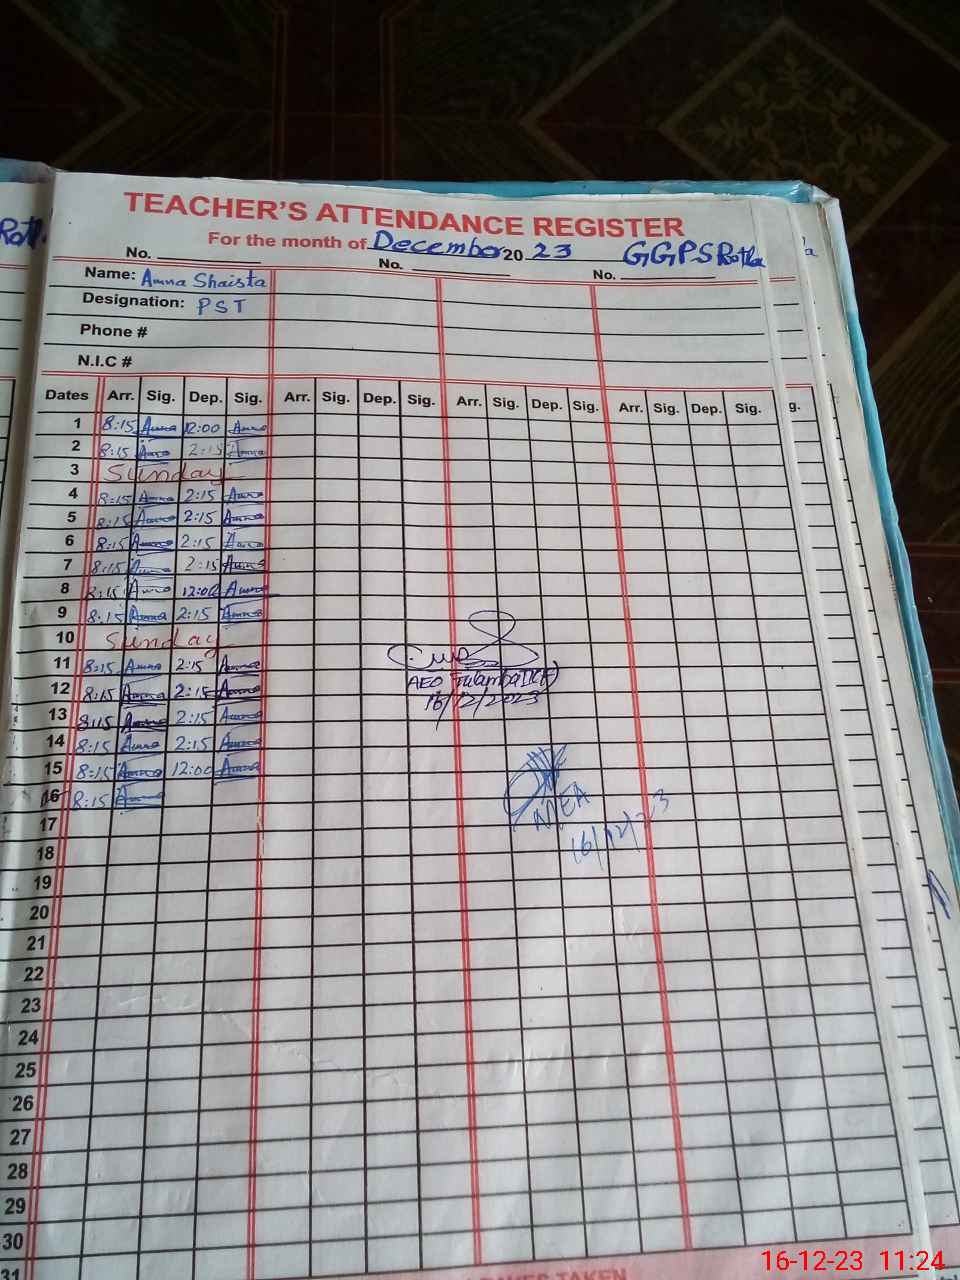 TEACHER'S ATTENDANCE REGISTER
For the month of December 2023 GGPS Rotla
No. No. No.
Name: Amna Shaista
Designation: PST
Phone #
N.I.C #
Dates Arr. Sig. Dep. Sig. Arr. Sig. Dep. Sig. Arr. Sig. Dep. Sig. Arr. Sig. Dep. Sig. g.
1 8:15 Amna 12:00 Amna
2 8:15 Amna 2:15 Amna
3 Sunday
4 8:15 Amna 2:15 Amna
5 8:15 Amna 2:15 Amna
6 8:15 Amna 2:15 Amna
7 8:15 Amna 2:15 Amna
8 8:15 Amna 12:00 Amna
9 8:15 Amna 2:15 Amna
10 Sunday
11 8:15 Amna 2:15 Amna
AEO Tulamba
12 8:15 Amna 2:15 Amna
16/12/2023
13 8:15 Amna 2:15 Amna
14 8:15 Amna 2:15 Amna
15 8:15 Amna 12:00 Amna
16 8:15 Amna
MEA
17
16/12/23
18
19
20
21
22
23
24
25
26
27
28
29
30
31
16-12-23 11:24
TAKEN